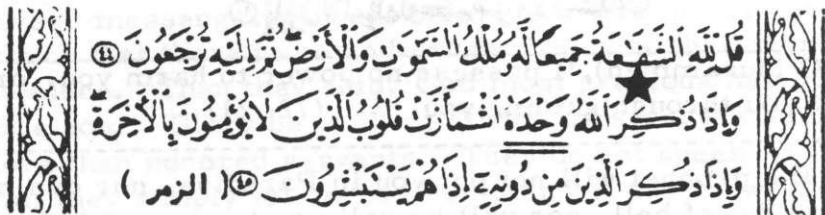 قُل لِّلَّهِ ٱلشَّفَٰعَةُ جَمِيعًا لَّهُۥ مُلْكُ ٱلسَّمَٰوَٰتِ وَٱلْأَرْضِ ثُمَّ إِلَيْهِ تُرْجَعُونَ ﴿٤٤﴾
وَإِذَا ذُكِرَ ٱللَّهُ وَحْدَهُ ٱشْمَأَزَّتْ قُلُوبُ ٱلَّذِينَ لَا يُؤْمِنُونَ بِٱلْأٓخِرَةِ
وَإِذَا ذُكِرَ ٱلَّذِينَ مِن دُونِهِۦٓ إِذَا هُمْ يَسْتَبْشِرُونَ ﴿٤٥﴾ ( الزمر )